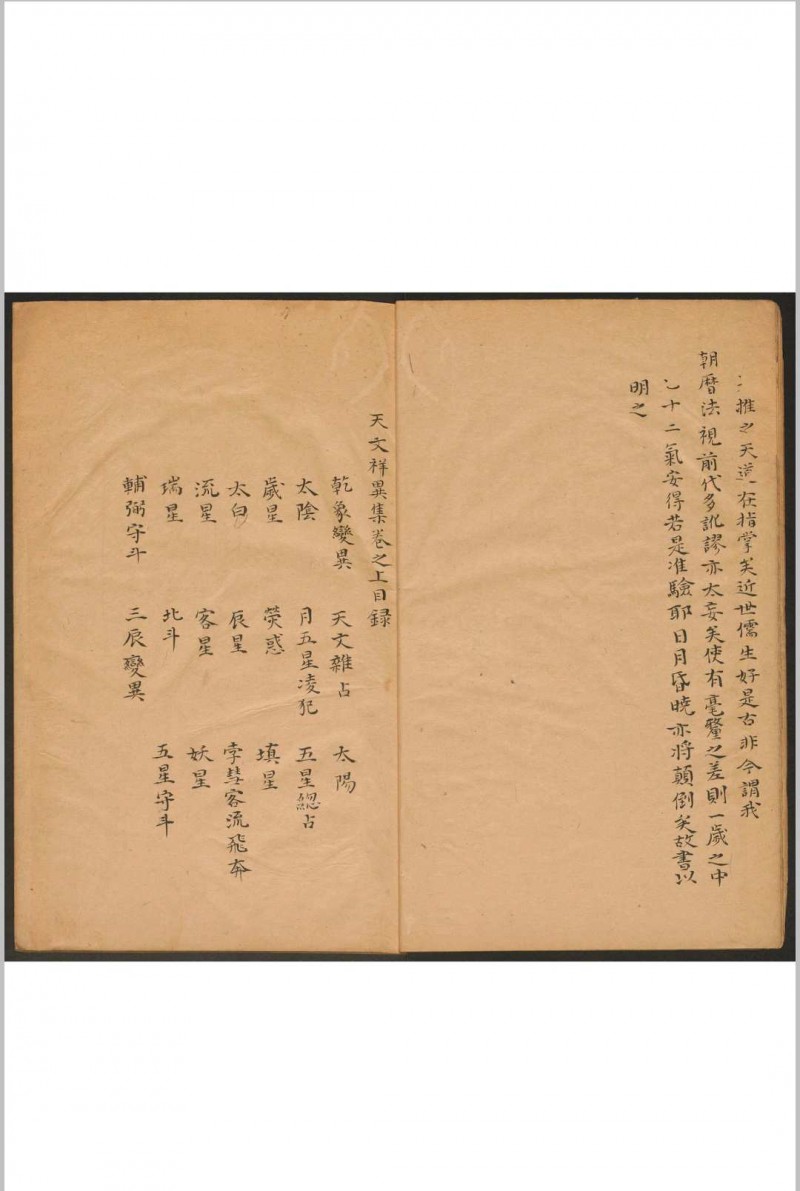 推之天道在指掌矣近世儒生好是古非今謂我
朝曆法視前代多訛謬亦太妄矣使有毫釐之差則一歲之中
十二氣安得若是准驗耶日月昏曉亦將顛倒矣故書以
明之
天文祥異集卷之上目録
乾象變異 天文雜占 太陽
太陰 月五星凌犯 五星總占
歲星 熒惑 填星
太白 辰星 孛彗客流飛奔
流星 客星 妖星
瑞星 北斗 五星守斗
輔弼守斗 三辰變異